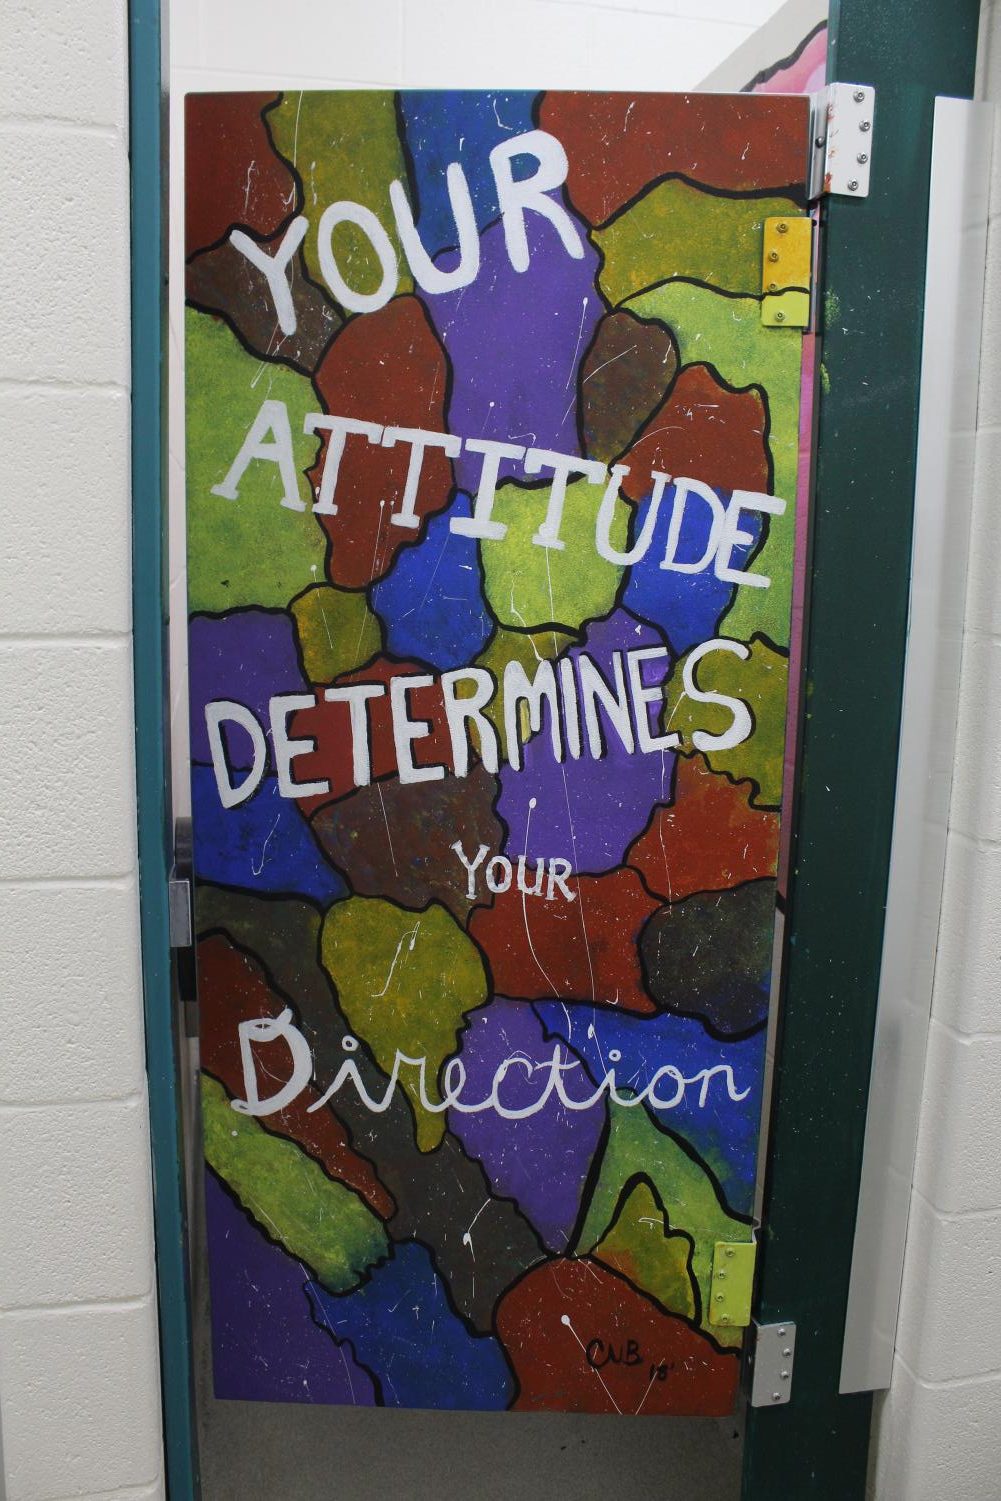 YOUR
ATTITUDE
DETERMINES
YOUR
Direction
CNB
18'